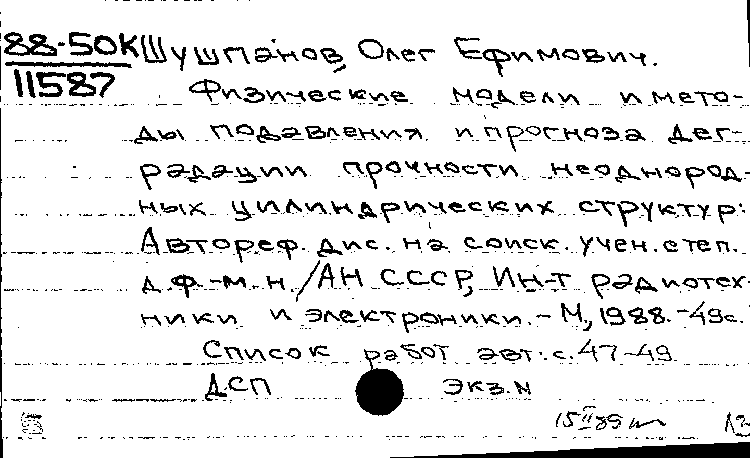 88-50К Шушпанов, Олег Ефимович.
11587 Физические модели и мето-
ды подавления и прогноза дег-
радации прочности неоднород-
ных цилиндрических структур:
Автореф. дис. на соиск. учен. степ.
д.ф.-м.н./АН СССР, Ин-т радиотех-
ники и электроники.-М, 1988.-49с.
Список работ авт.: с.47-49
ДСП Экз.N
15 II 89